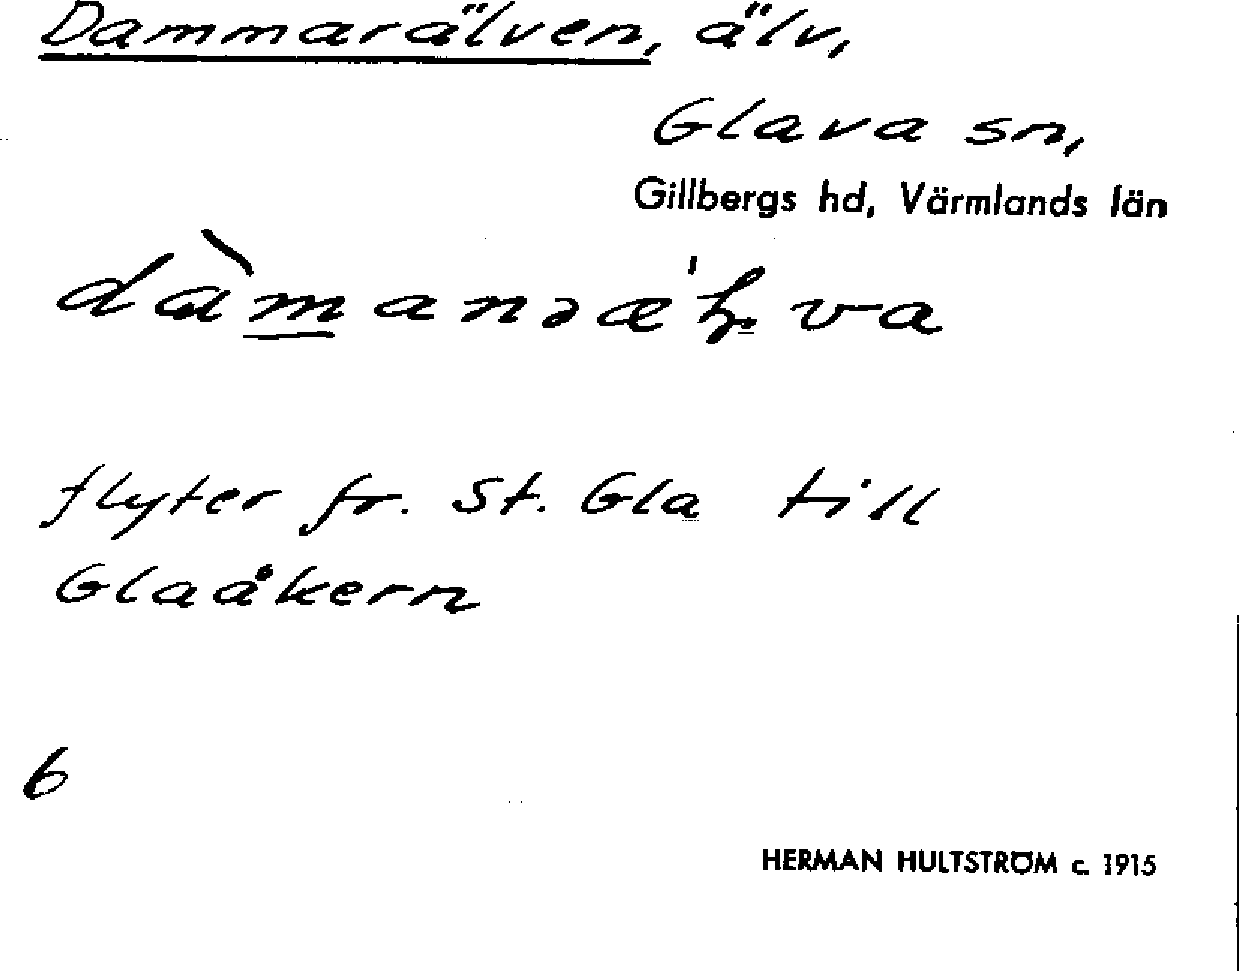 Dammarälven, älv,
Glava sn,
Gillbergs hd, Värmlands län
flyter fr. St. Gla till
Glaåkern
6
HERMAN HULTSTRÖM c. 1915